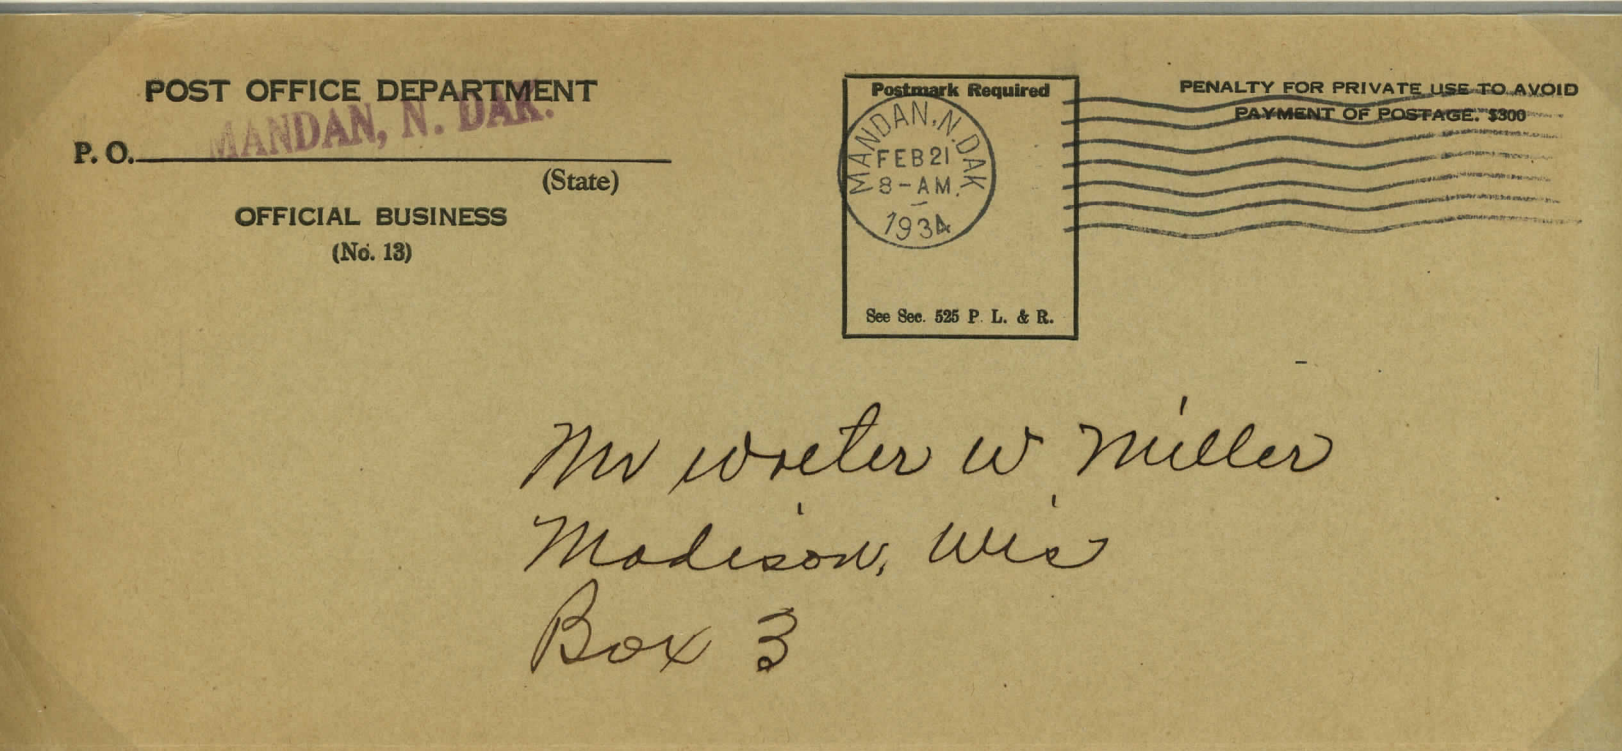 POST OFFICE DEPARTMENT
MANDAN, N. DAK.
P. O.
(State)
OFFICIAL BUSINESS
(No. 13)
Postmark Required
MANDAN, N. DAK
FEB 21
8-AM.
1934
See Sec. 525 P. L. & R.
PENALTY FOR PRIVATE USE TO AVOID
PAYMENT OF POSTAGE. $300
Mr Walter W Miller
Madison, Wis
Box 3